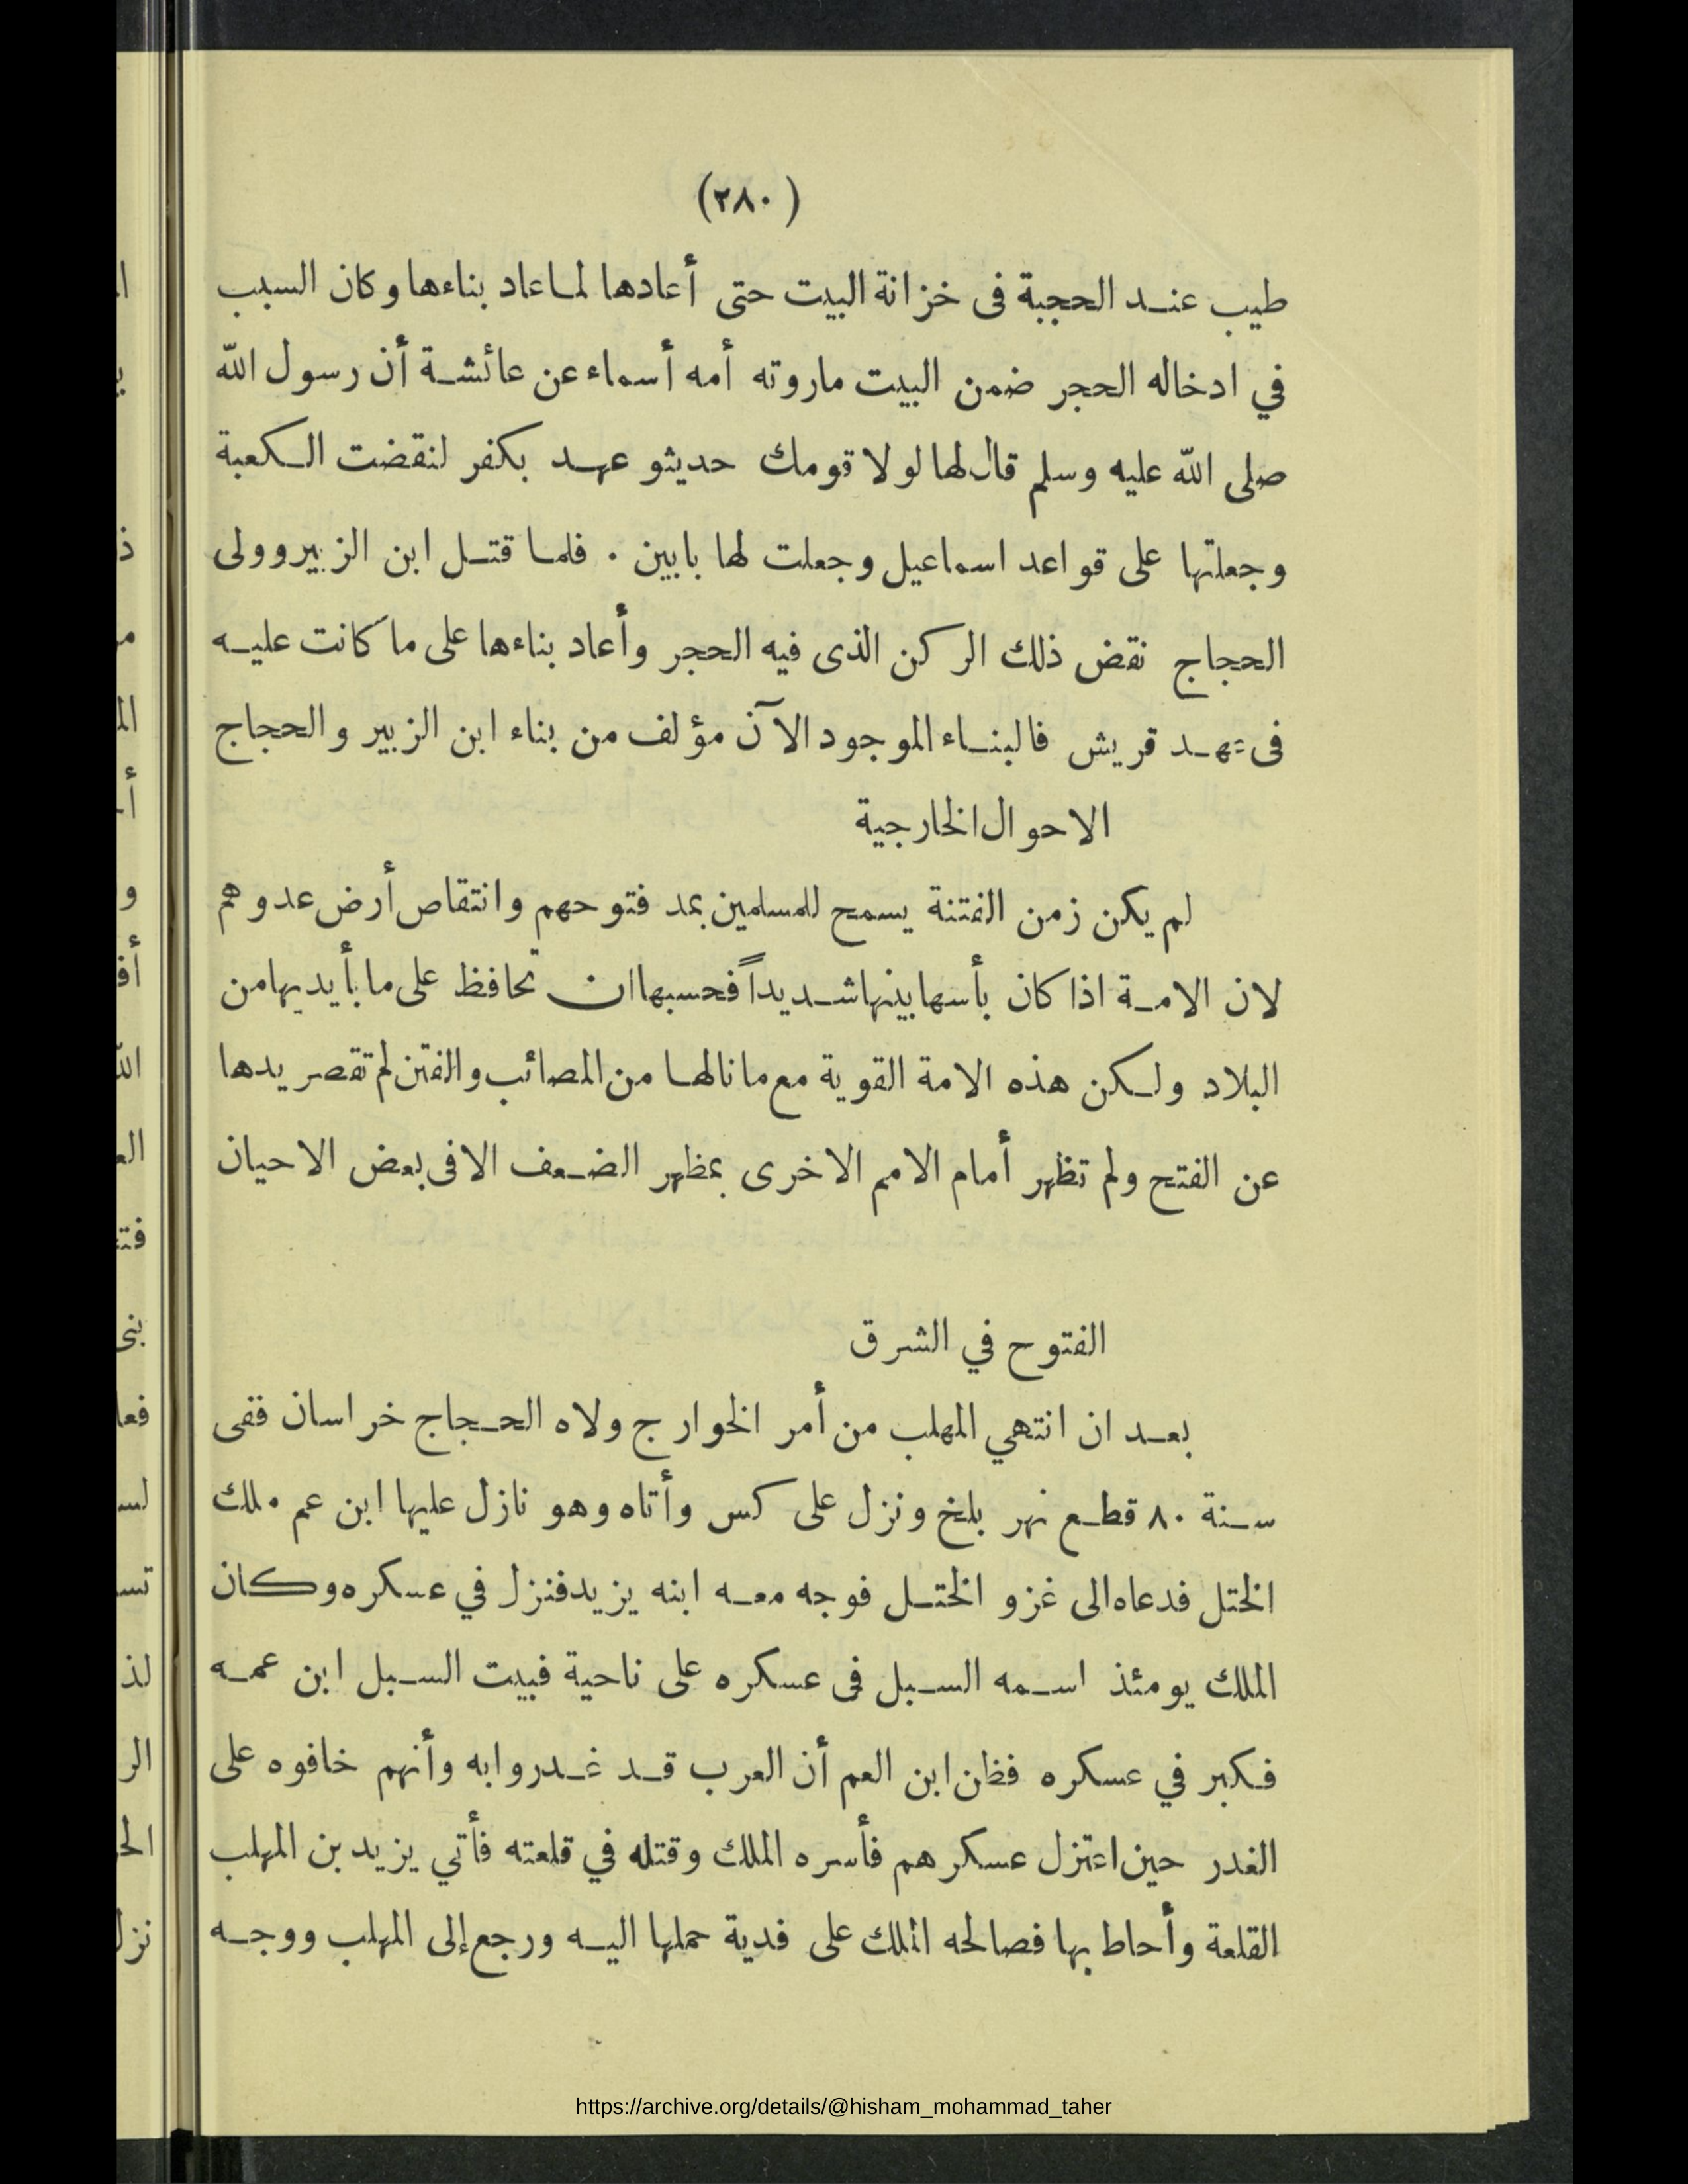 (٢٨٠)
طيب عند الحجبة فى خزانة البيت حتى أعادها لما عاد بناءها وكان السبب
في ادخاله الحجر ضمن البيت ماروته أمه أسماء عن عائشة أن رسول الله
صلى الله عليه وسلم قال لها لولا قومك حديثو عهد بكفر لنقضت الكعبة
وجعلتها على قواعد اسماعيل وجعلت لها بابين . فلما قتل ابن الزبير وولى
الحجاج نقض ذلك الركن الذى فيه الحجر وأعاد بناءها على ما كانت عليه
فى عهد قريش فالبناء الموجود الآن مؤلف من بناء ابن الزبير والحجاج
الاحوال الخارجية
لم يكن زمن الفتنة يسمح للمسلمين بمد فتوحهم وانتقاص أرض عدوهم
لان الامة اذا كان بأسها بينها شديداً فحسبها ان تحافظ على ما بأيديها من
البلاد ولكن هذه الامة القوية مع ما نالها من المصائب والفتن لم تقصر يدها
عن الفتح ولم تظهر أمام الامم الاخرى بمظهر الضعف الا فى بعض الاحيان
الفتوح في الشرق
بعد ان انتهي المهلب من أمر الخوارج ولاه الحجاج خراسان ففى
سنة ٨٠ قطع نهر بلخ ونزل على كس وأتاه وهو نازل عليها ابن عم ملك
الختل فدعاه الى غزو الختل فوجه معه ابنه يزيد فنزل في عسكره وكان
الملك يومئذ اسمه السبل فى عسكره على ناحية فبيت السبل ابن عمه
فكبر في عسكره فظن ابن العم أن العرب قد غدروا به وأنهم خافوه على
الغدر حين اعتزل عسكرهم فأسره الملك وقتله في قلعته فأتي يزيد بن المهلب
القلعة وأحاط بها فصالحه الملك على فدية حملها اليه ورجع إلى المهلب ووجه
https://archive.org/details/@hisham_mohammad_taher